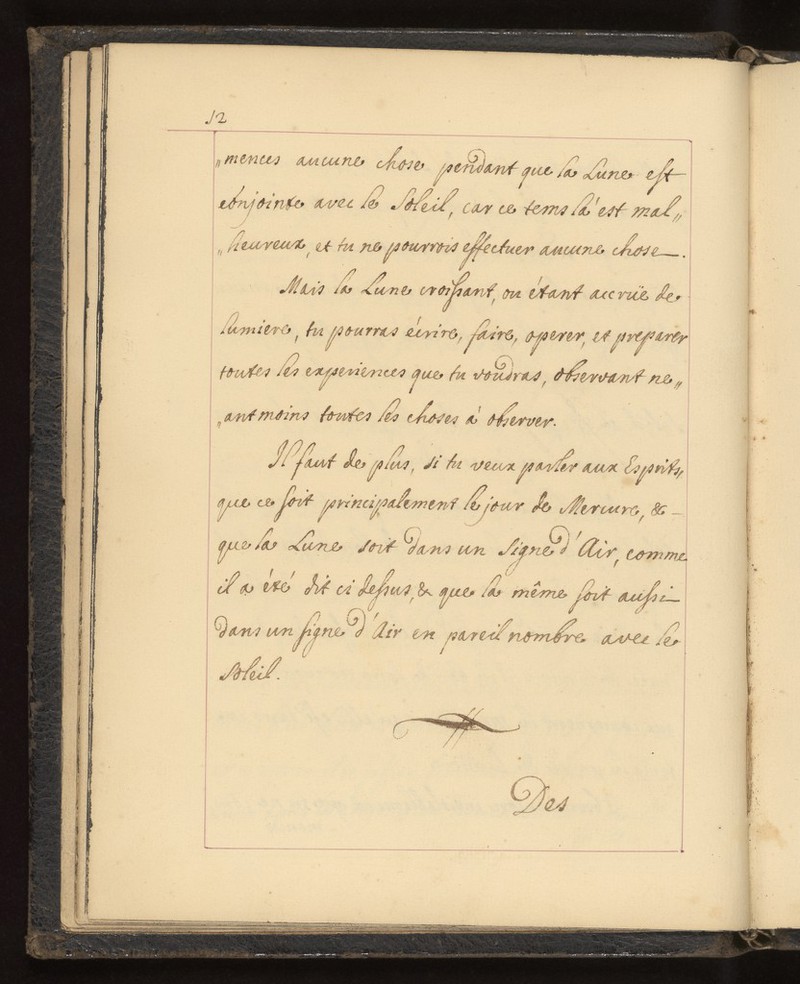 12
„mences aucune chose pendant que la Lune est
conjointe avec le Soleil, car ce tems là est mal„
„heureux, et tu ne pourrois effectuer aucune chose.
Mais la Lune croissant, ou étant accrüe de
lumiere, tu pourras écrire, faire, operer, et preparer
toutes les experiences que tu voudras, observant ne„
„antmoins toutes les choses à observer.
Il faut de plus, si tu veux parler aux Esprits,
que ce soit principalement le jour de Mercure, & –
que la Lune soit dans un Signe d'Air, comme
il a été dit ci dessus, & que la même soit aussi
dans un signe d'Air en pareil nombre avec le
Soleil.
Des